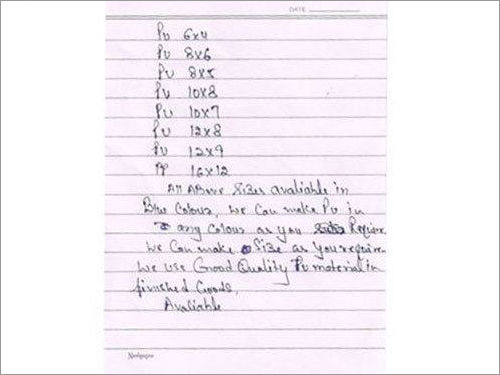 DATE
PU 6x4
PU 8x6
PU 8x5
PU 10x8
PU 10x7
PU 12x8
PU 12x9
PP 16x12
All Above Sizes avaliable in
Blue Colour, We Can make PU in
any Colour as you Require
We Can make Size as you require
We use Good Quality PU material in
finished Goods.
Avaliable